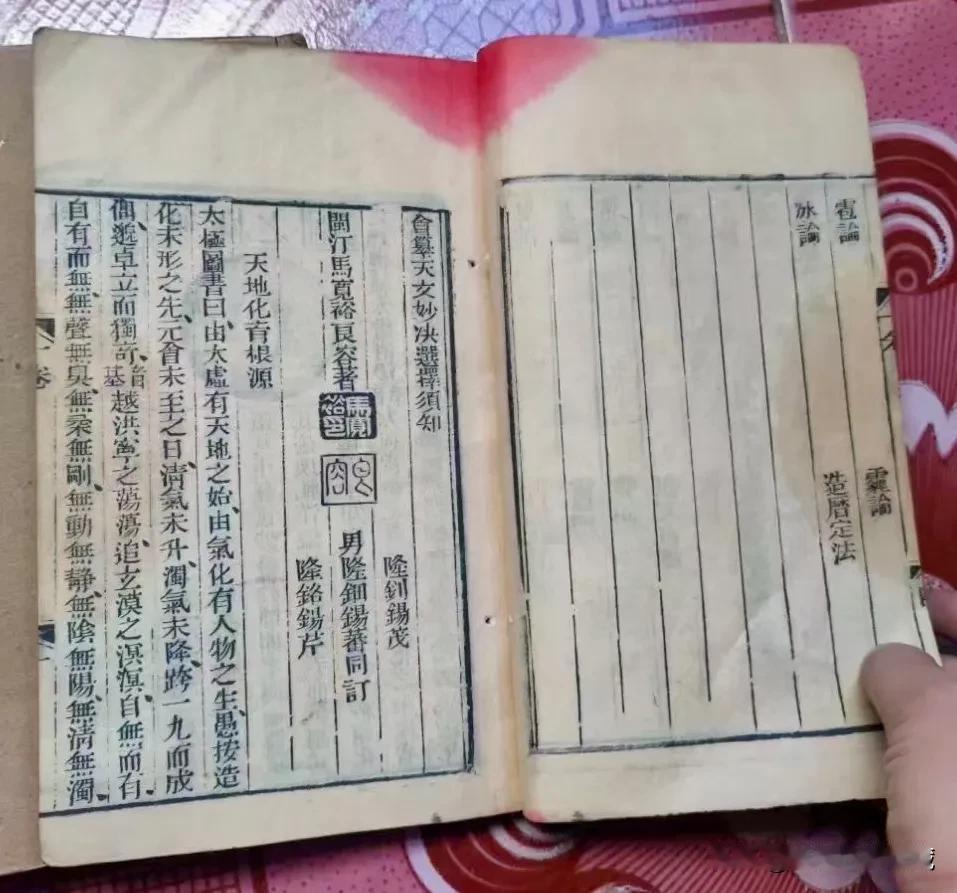 雹論　論
冰論　造曆定法
會纂天文妙决選擇須知
隆釗錫茂
閩汀馬寬裕良容著　馬寬裕印　良容　男隆鈿錫蕃同訂
隆銘錫芹
天地化育根源
太極圖書曰、由太虛有天地之始、由氣化有人物之生、愚按造
化未形之先、元會未至之日、清氣未升、濁氣未降、跨一九而成
邈卓立而獨奇、越洪寧之蕩蕩、追玄漠之溟溟、自無而有、
自有而無、無聲無臭、無柔無剛、無動無静、無陰無陽、無清無濁、
卷一